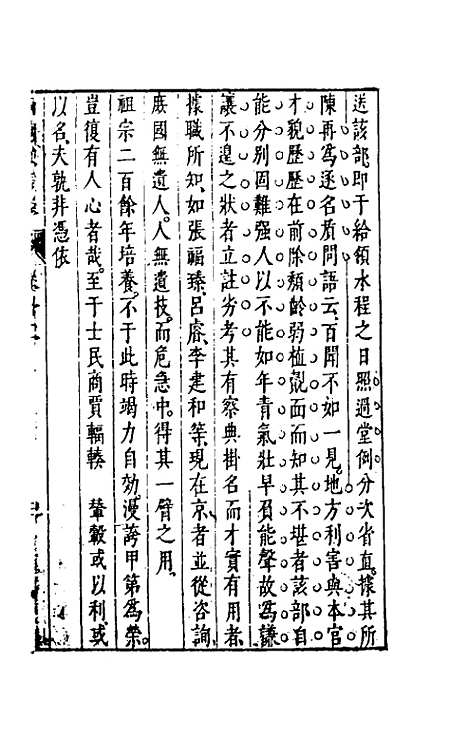 送該部即于給領水程之日照過堂例分次省直據其所
陳再爲逐名質問語云百聞不如一見地方利害與本官
才貌歷歷在前除頹齡弱植覿面而知其不堪者該部自
能分別固難强人以不能如年青氣壯早負能聲故爲謙
讓不遑之狀者立註劣考其有察典掛名而才實有用者
據職所知如張福臻呂㢘李建和等現在京者並從咨詢
庶國無遺人人無遺技而危急中得其一臂之用
祖宗二百餘年培養不于此時竭力自効漫誇甲第爲榮
豈復有人心者哉至于士民商賈輻輳 輦轂或以利或
以名夫孰非憑依